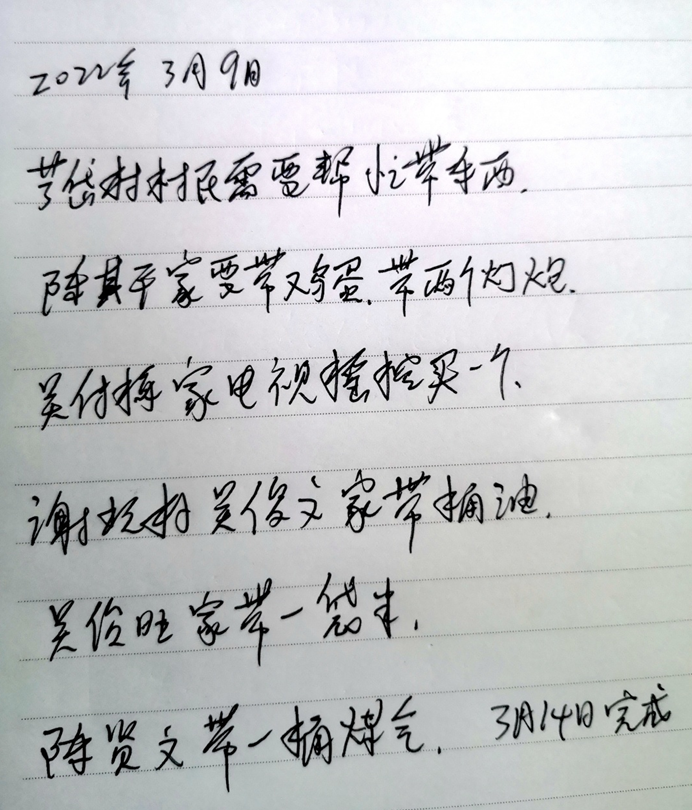 2022年3月9日
岱村村民需要帮忙带东西.
陈其平家要带鸡蛋、带两个灯炮.
吴付栋家电视摇控买一个、
谢坑村吴俊文家带桶油.
吴俭旺家带一袋米.
陈贤文带一桶煤气. 3月14日完成